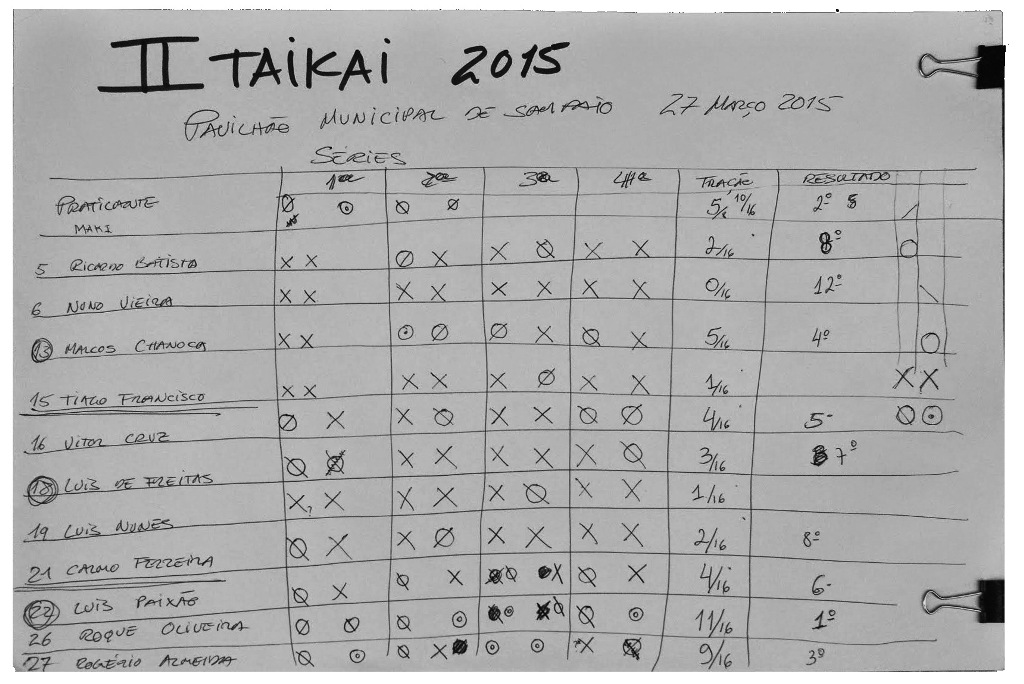 II TAIKAI 2015
PAVILHÃO MUNICIPAL DE SAMPAIO 27 MARÇO 2015
SÉRIES
PRATICANTE 1ª 2ª 3ª 4ª TRAÇÃO RESULTADO
MAKI 5/8 10/16 2º
5 RICARDO BATISTA X X Ø X X Ø X X 2/16 8º
6 NUNO VIEIRA X X X X X X X X 0/16 12º
13 MARCOS CHANOCA X X ⊙ Ø Ø X Ø X 5/16 4º
15 TIAGO FRANCISCO X X X X X Ø X X 1/16 X X
16 VITOR CRUZ Ø X X Ø X X Ø Ø 4/16 5- Ø ⊙
18 LUIS DE FREITAS Ø Ø X X X X X Ø 3/16 7º
19 LUIS NUNES X? X X X X Ø X X 1/16
21 CARMO FERREIRA Ø X X Ø X X X X 2/16 8º
22 LUIS PAIXÃO Ø X Ø X Ø X Ø X 4/16 6-
26 ROQUE OLIVEIRA Ø Ø Ø ⊙ ⊙ Ø Ø ⊙ 11/16 1º
27 ROGÉRIO ALMEIDA Ø ⊙ Ø X ⊙ ⊙ X 9/16 3º